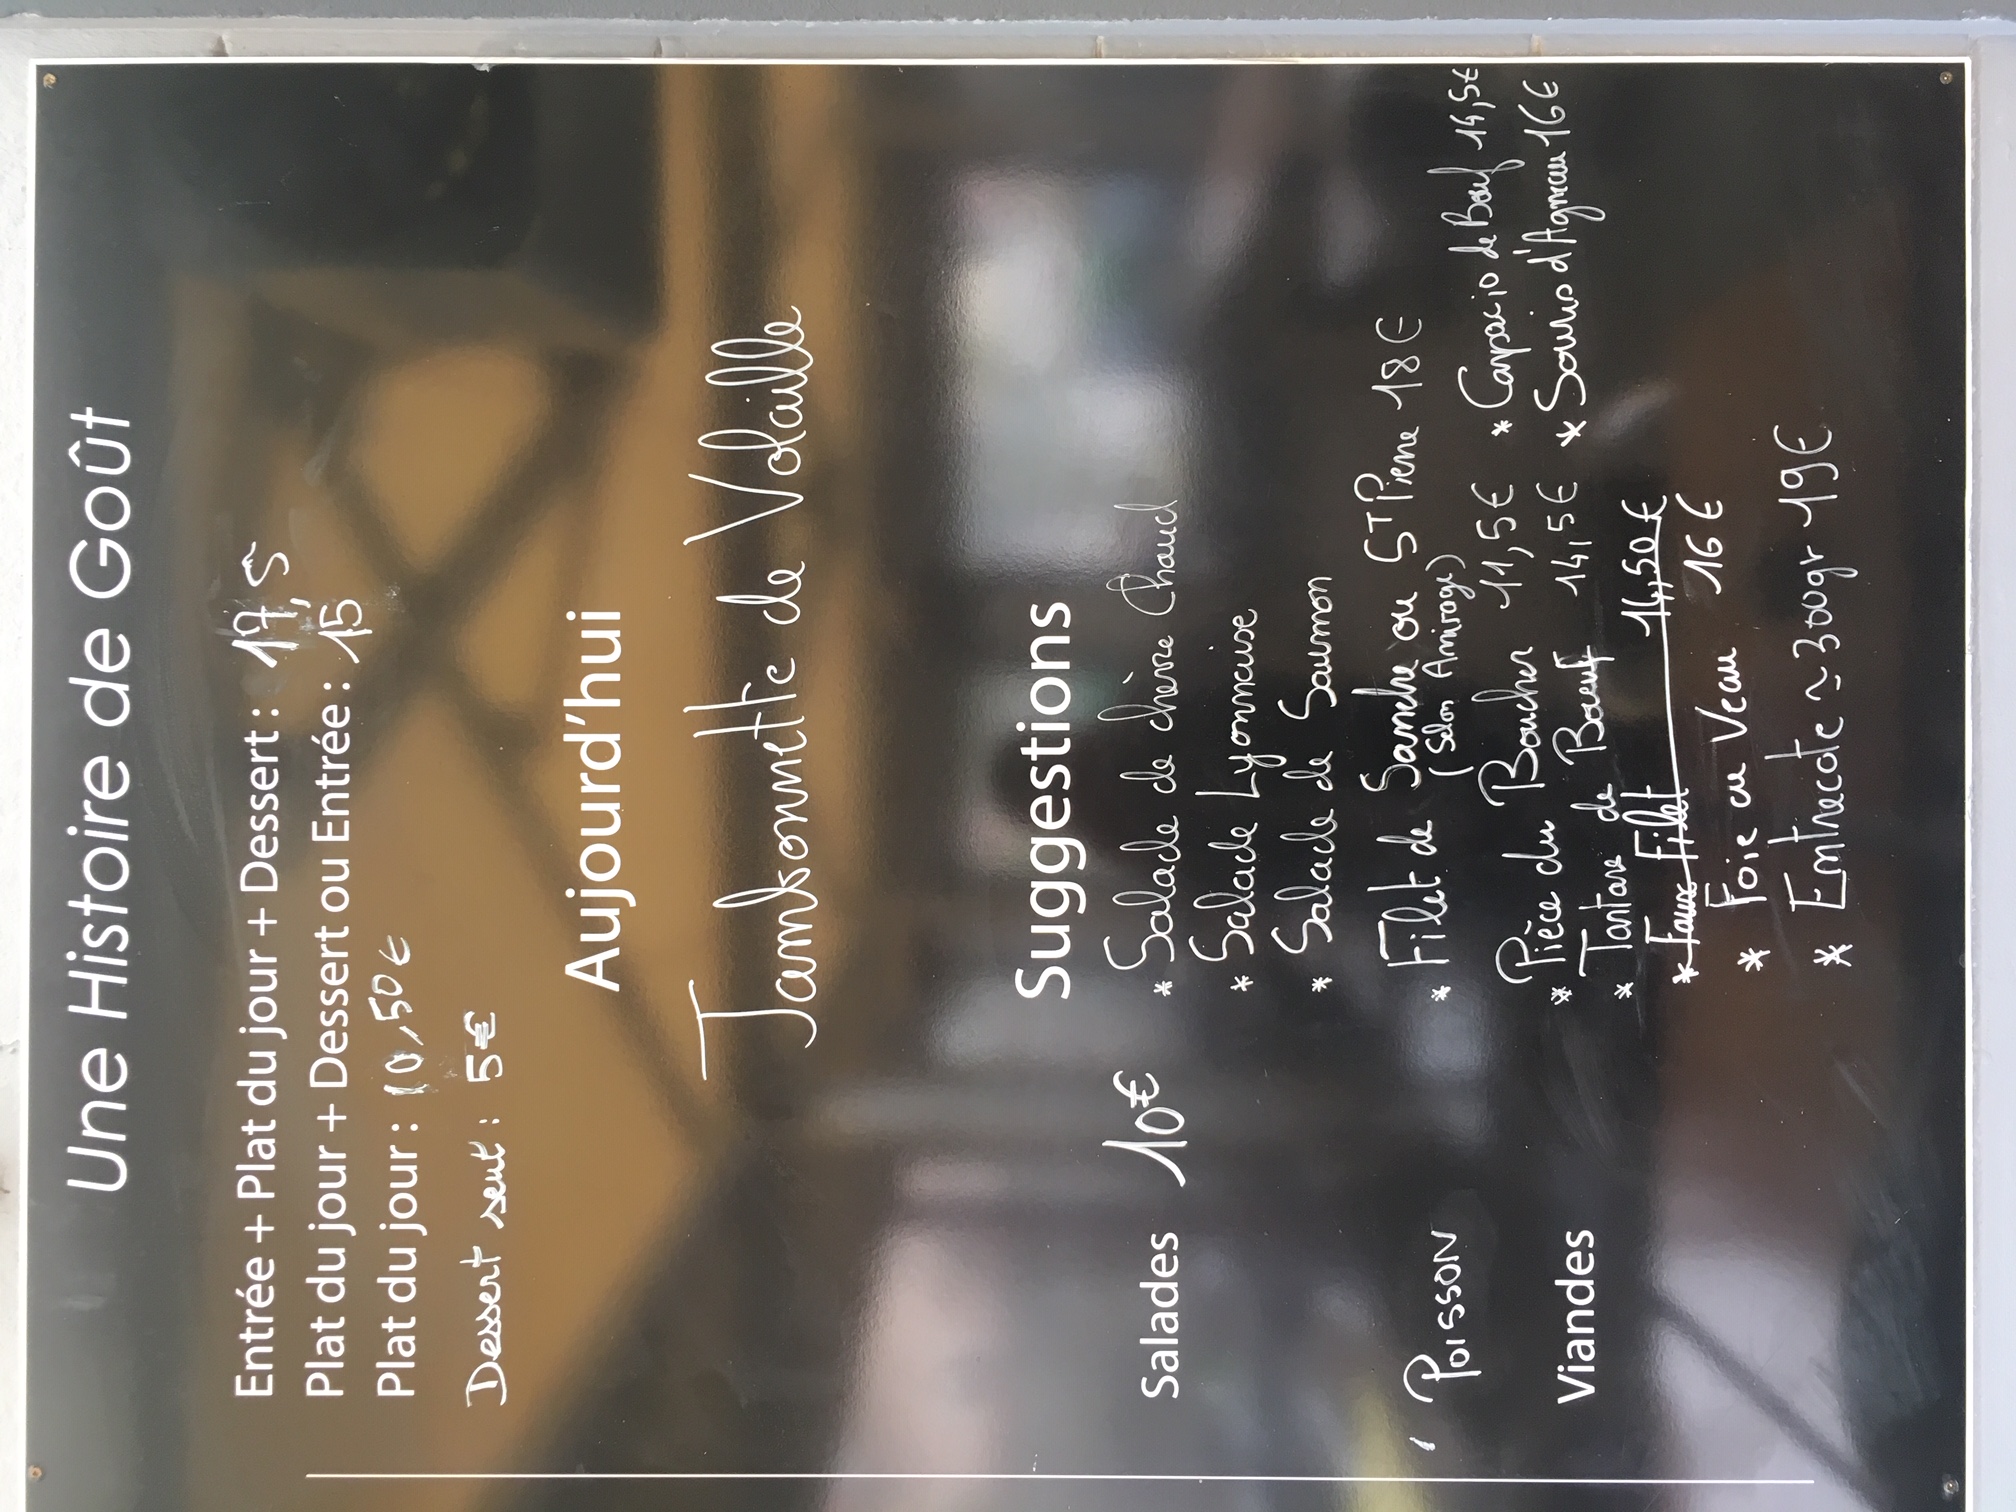 Une Histoire de Goût
Entrée + Plat du jour + Dessert : 17,5
Plat du jour + Dessert ou Entrée : 15
Plat du jour : 10,50€
Dessert seul : 5€
Aujourd'hui
Jambonnette de Volaille
Suggestions
Salades 10€
* Salade de chèvre Chaud
* Salade Lyonnaise
* Salade de Saumon
Poisson
* Filet de Sandre ou St Pierre 18€
(Selon Arrivage)
Viandes
* Pièce du Boucher 11,5€ * Carpacio de Bœuf 14,5€
* Tartare de Boeuf 14,5€ * Souris d'Agneau 16€
* Faux Filet 14,50€
* Foie de Veau 16€
* Entrecote ~300gr 19€